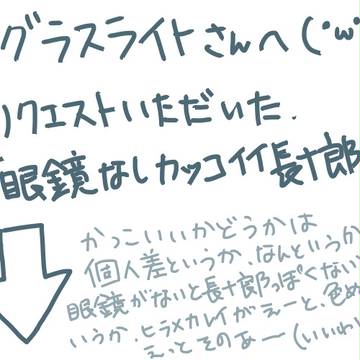 グラスライトさんへ(・ω・
リクエストいただいた.
「眼鏡なしカッコイイ長十郎
かっこいいかどうかは
個人差というか、なんというか
眼鏡がないと長十郎っぽくない
いうか、ヒラメカレイがえーと、色め
えっとそのぁー(いいわ